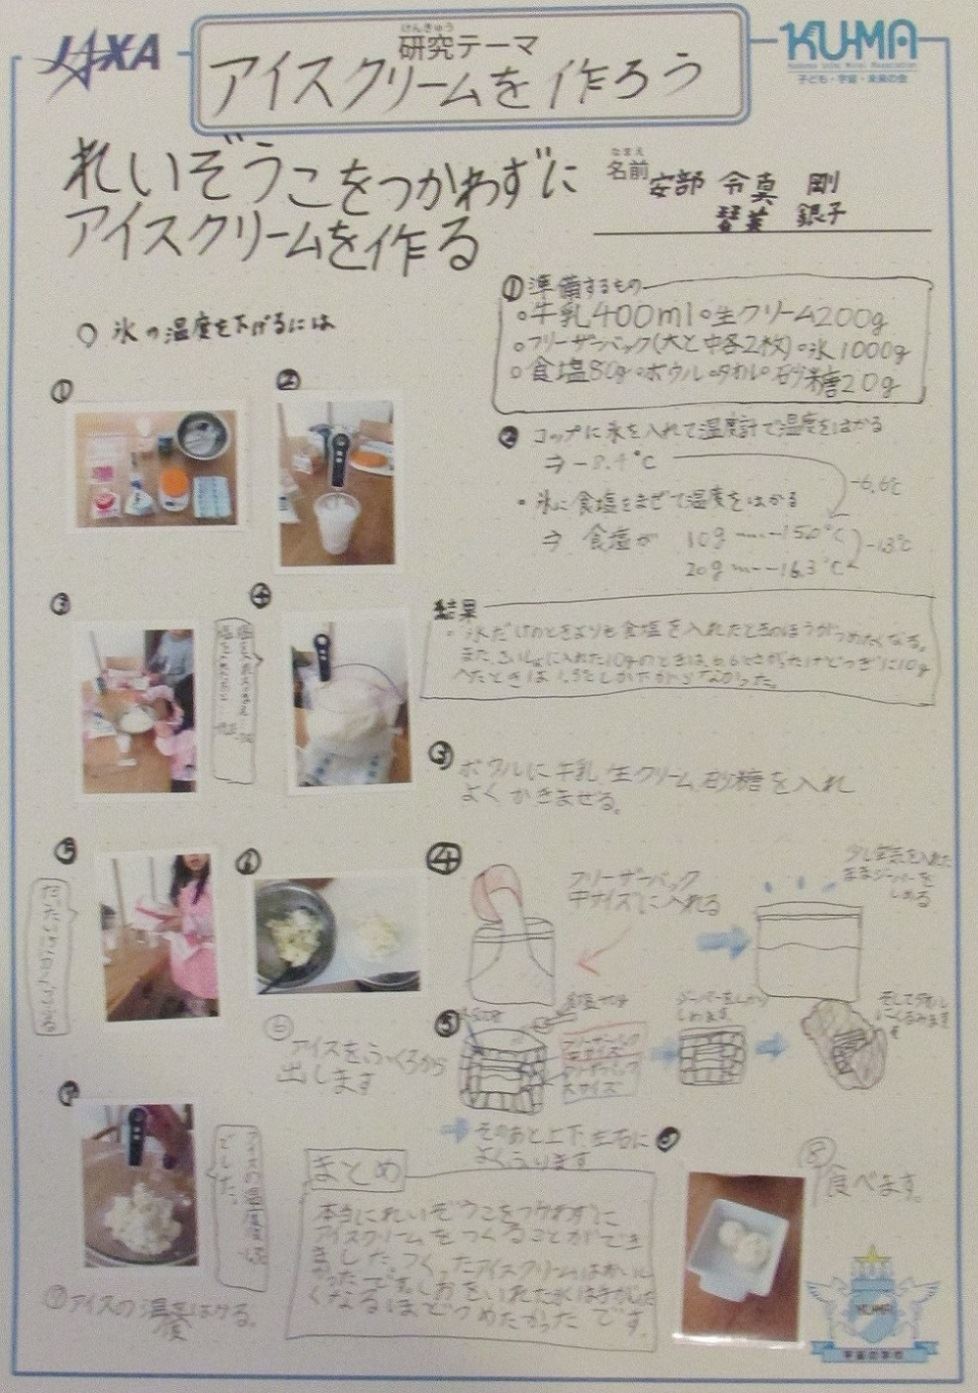 JAXA
けんきゅう
研究テーマ
アイスクリームを作ろう
KU-MA
子ども・宇宙・未来の会
れいぞうこをつかわずに
アイスクリームを作る
なまえ
名前 安部 令真 剛
琴美 銀子
○ 氷の温度を下げるには
① 準備するもの
・牛乳400ml・生クリーム200g
・フリーザーバック(大と中各2枚)・氷1000g
・食塩80g・ボウル・タオル・砂糖20g
①
②
② コップに氷を入れて温度計で温度をはかる
⇒ -8.4℃
-6.6℃
・氷に食塩をまぜて温度をはかる
⇒ 食塩が 10g -15.0℃
-1.3℃
20g -16.3℃
③
④
結果
・氷だけのときよりも食塩を入れたときのほうがつめたくなる。
また、さいしょに入れた10gのときは、6.6℃さがったけどつぎに10g
入れたときは1.3℃しか下がらなかった。
③ ボウルに牛乳、生クリーム、砂糖を入れ
よくかきまぜる。
⑤
⑥
④
フリーザーバック
中サイズに入れる
少し空気を入れた
ままジーパーを
しめる
⑥
アイスをふくろから
出します
⑤
ジーパーをしっかり
しめます
そしてタオル
にくるみます
大サイズ
そのあと上下、左右に
よくふります
⑦
⑦アイスの温度をはかる。
まとめ
本当にれいぞうこをつかわずに
アイスクリームをつくることができ
ました。つくったアイスクリームはおいし
かったです。しおをいれた氷は手がいた
くなるほどつめたかったです。
⑧
⑧
食べます。
KU-MA
宇宙の学校